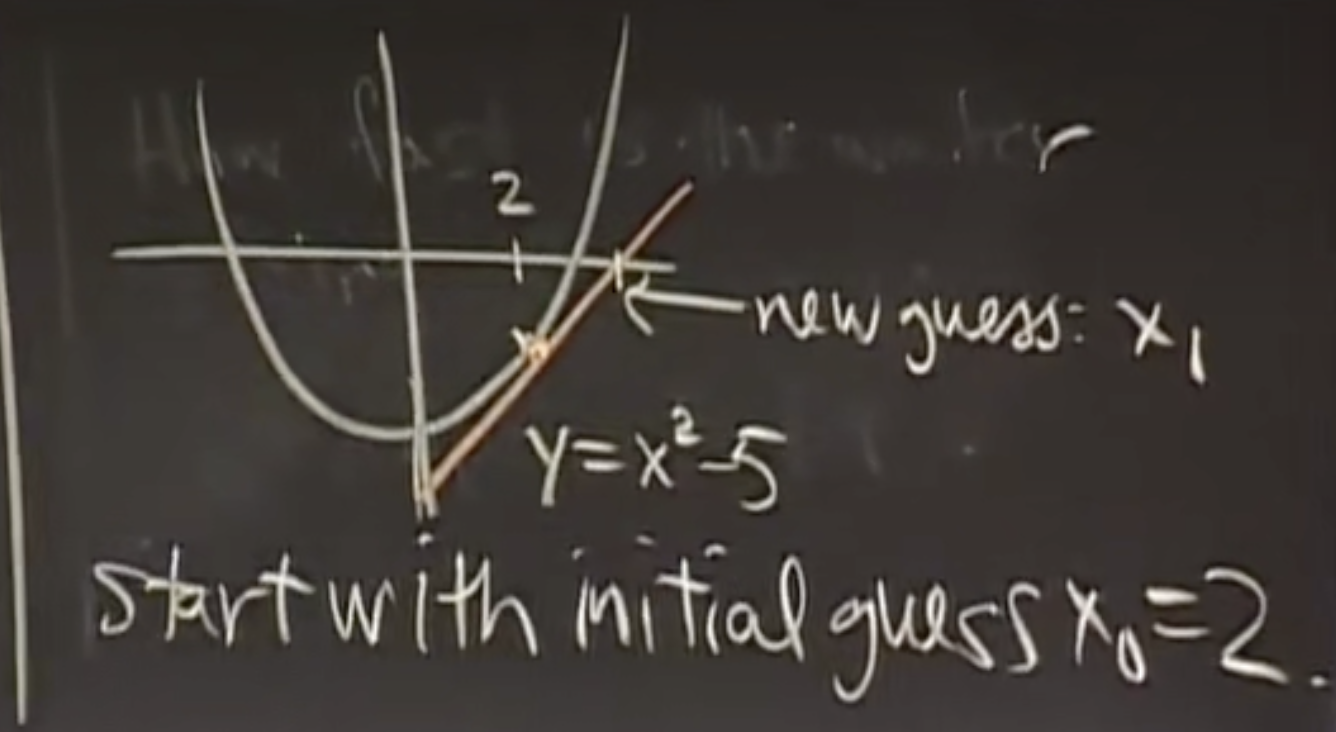 How fast is the water
2
new guess: x₁
y=x²-5
start with initial guess x₀=2.